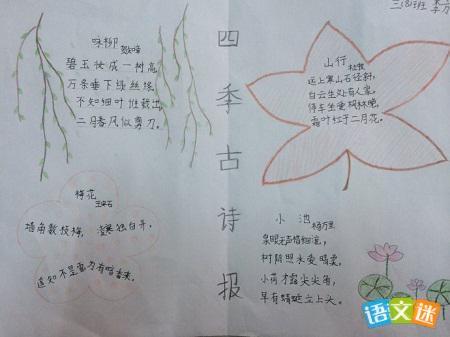 三(8)班
四季古诗报
咏柳
贺知章
碧玉妆成一树高,
万条垂下绿丝绦,
不知细叶谁裁出,
二月春风似剪刀。
山行
杜牧
远上寒山石径斜,
白云生处有人家,
停车坐爱枫林晚,
霜叶红于二月花。
梅花
王安石
墙角数枝梅,凌寒独自开,
遥知不是雪,为有暗香来。
小池
杨万里
泉眼无声惜细流,
树阴照水爱晴柔,
小荷才露尖尖角,
早有蜻蜓立上头。
语文迷